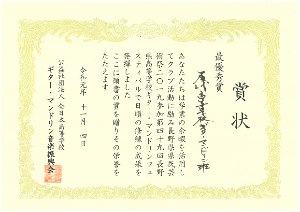 賞状
最優秀賞
あなたたちは学業の余暇を活用し
てクラブ活動に励み長野県県民芸
術祭二〇一九参加第四十九回長野
県高等学校ギター・マンドリンフェ
スティバルで日頃の修練の成果を
発揮しました
ここに栩の賞を贈りその栄誉を
たたえます
令和元年 十一月 四日
公益社団法人 全日本高等学校
ギター・マンドリン音楽振興会